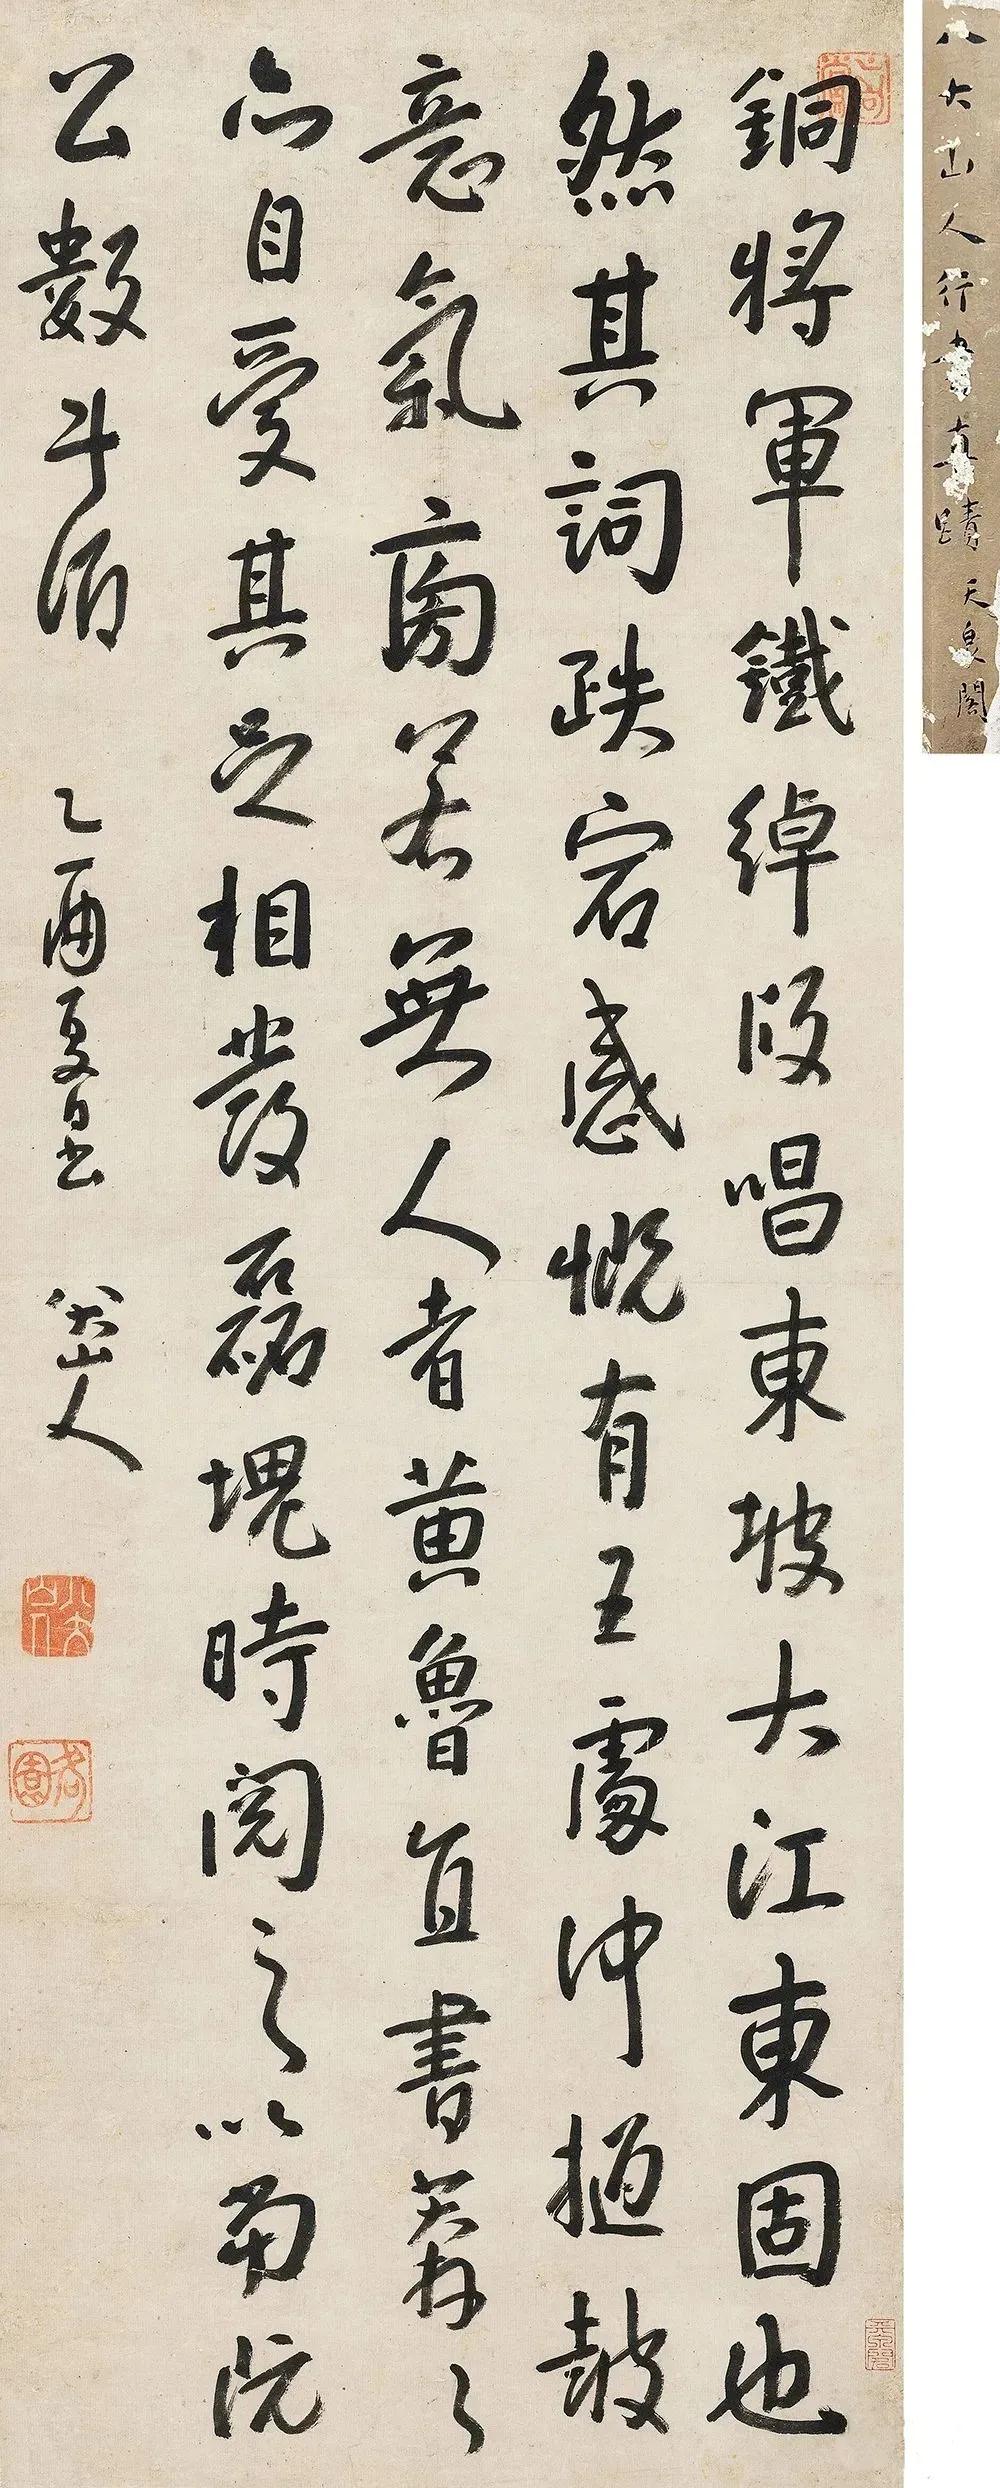 八大山人行書真蹟 天泉閣
銅將軍鐵綽版唱東坡大江東固也
然其詞跌宕感慨有王處仲撾鼓
意氣旁若無人者黃魯直書莽〻
亦自受其足相發磊塊時閱之以當阮
公數斗酒 乙酉夏日書 八大山人
八大山人
何園